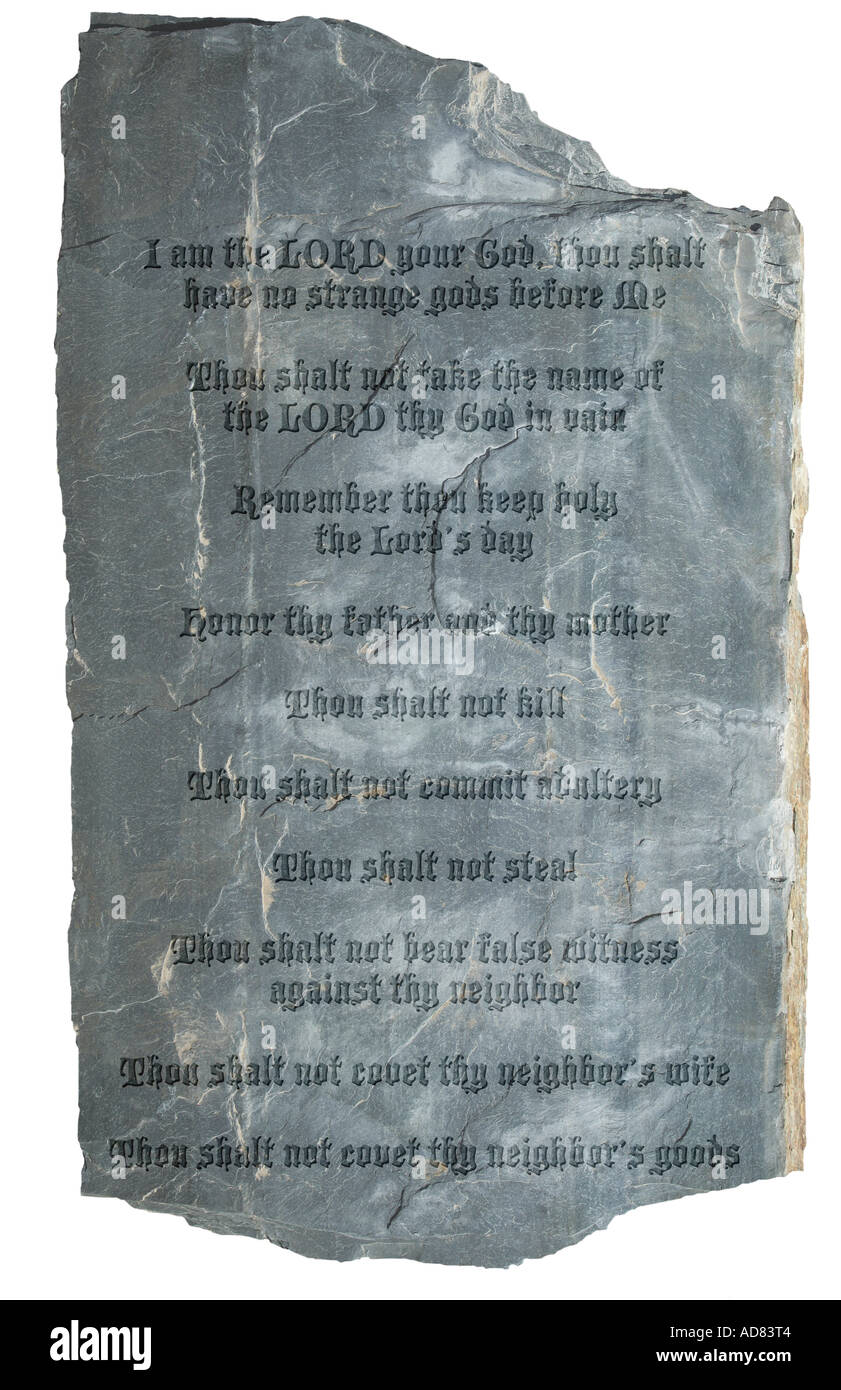 I am the LORD your God, thou shalt
have no strange gods before Me
Thou shalt not take the name of
the LORD thy God in vain
Remember thou keep holy
the Lord's day
Honor thy father and thy mother
Thou shalt not kill
Thou shalt not commit adultery
Thou shalt not steal
Thou shalt not bear false witness
against thy neighbor
Thou shalt not covet thy neighbor's wife
Thou shalt not covet thy neighbor's goods
a a
a a
a a
a a
alamy
a a
alamy
a a
a a
alamy
Image ID: AD83T4
www.alamy.com